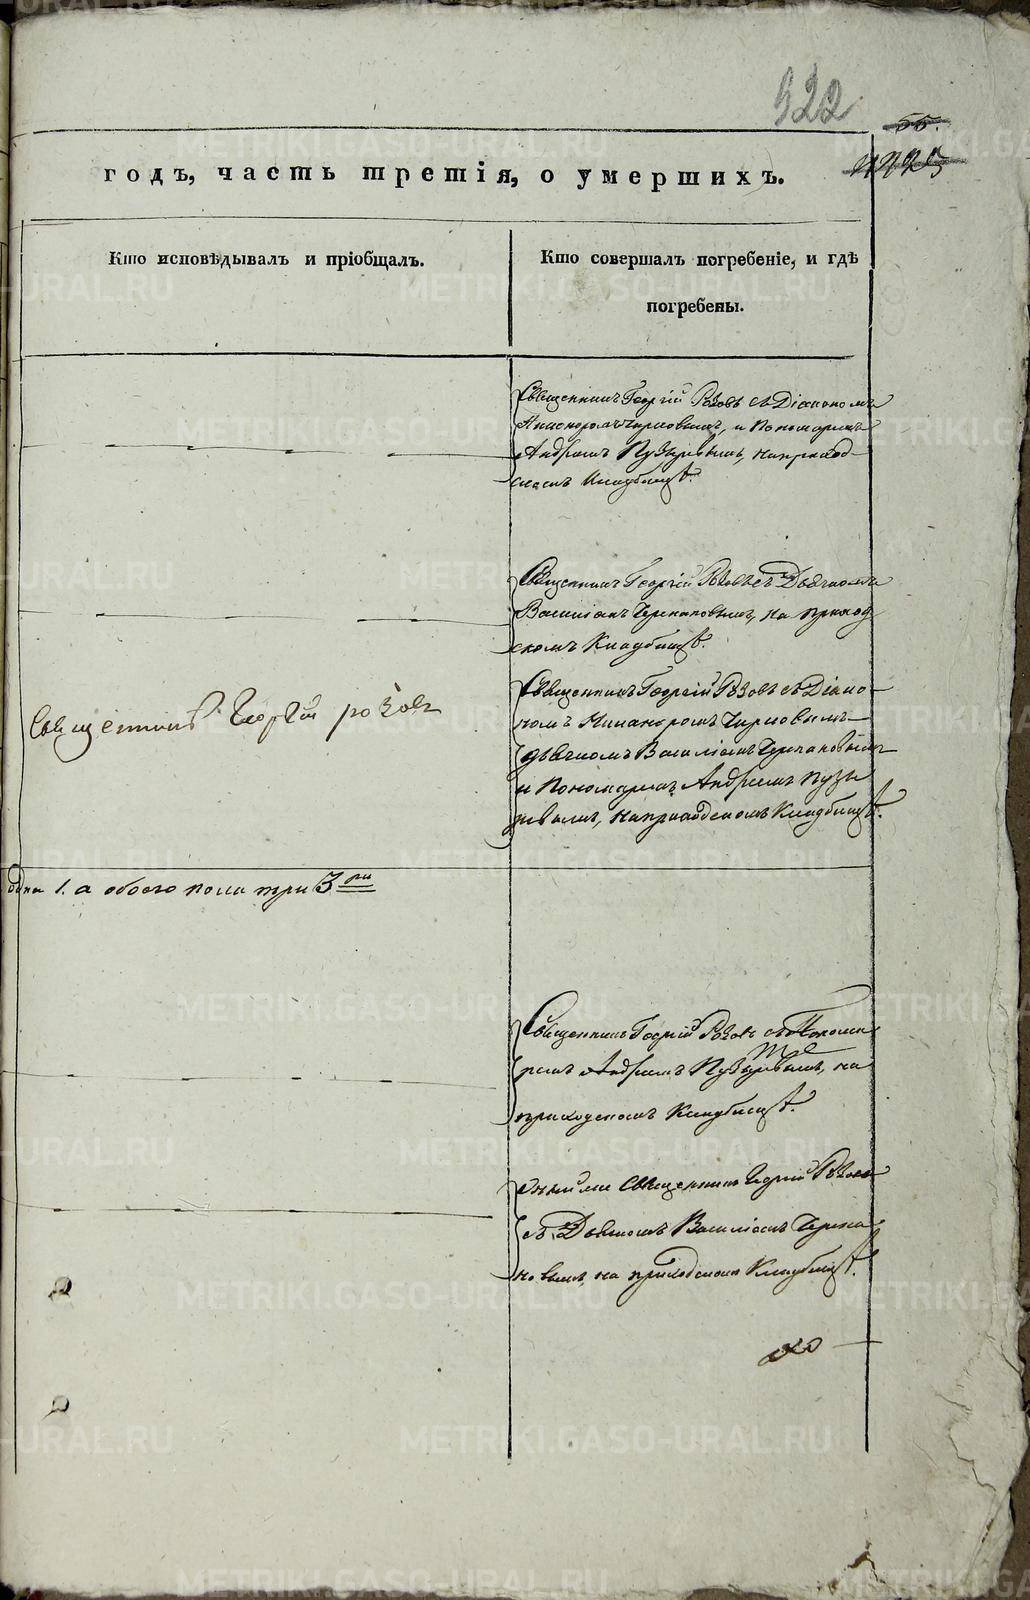 922
55.
годъ, часть третія, о умершихъ.
Кто исповѣдывалъ и пріобщалъ.
Кто совершалъ погребеніе, и гдѣ
погребены.
Священникъ Георгій Розовъ съ Діакономъ
Никаноромъ Чирковымъ, и Пономаремъ
Андреемъ Пузыревымъ, на приход-
скомъ Кладбищѣ.
Священникъ Георгій Розовъ съ Дьячкомъ
Василіемъ Чернановымъ, на приход-
скомъ Кладбищѣ.
Священникъ Георгій Розовъ
Священникъ Георгій Розовъ съ Діако-
номъ Никаноромъ Чирковымъ
дьячкомъ Василіемъ Чернановымъ
и Пономаремъ Андреемъ Пузы
ревымъ, на приходскомъ Кладбищѣ.
одна 1. а обоего пола три 3 ри
Священникъ Георгій Розовъ съ Понома
ремъ Андреемъ Пузыревымъ, на
приходскомъ Кладбищѣ.
Священникъ Георгій Розовъ
съ Дьячкомъ Василіемъ Черна
новымъ, на приходскомъ Кладбищѣ.
METRIKI.GASO-URAL.RU